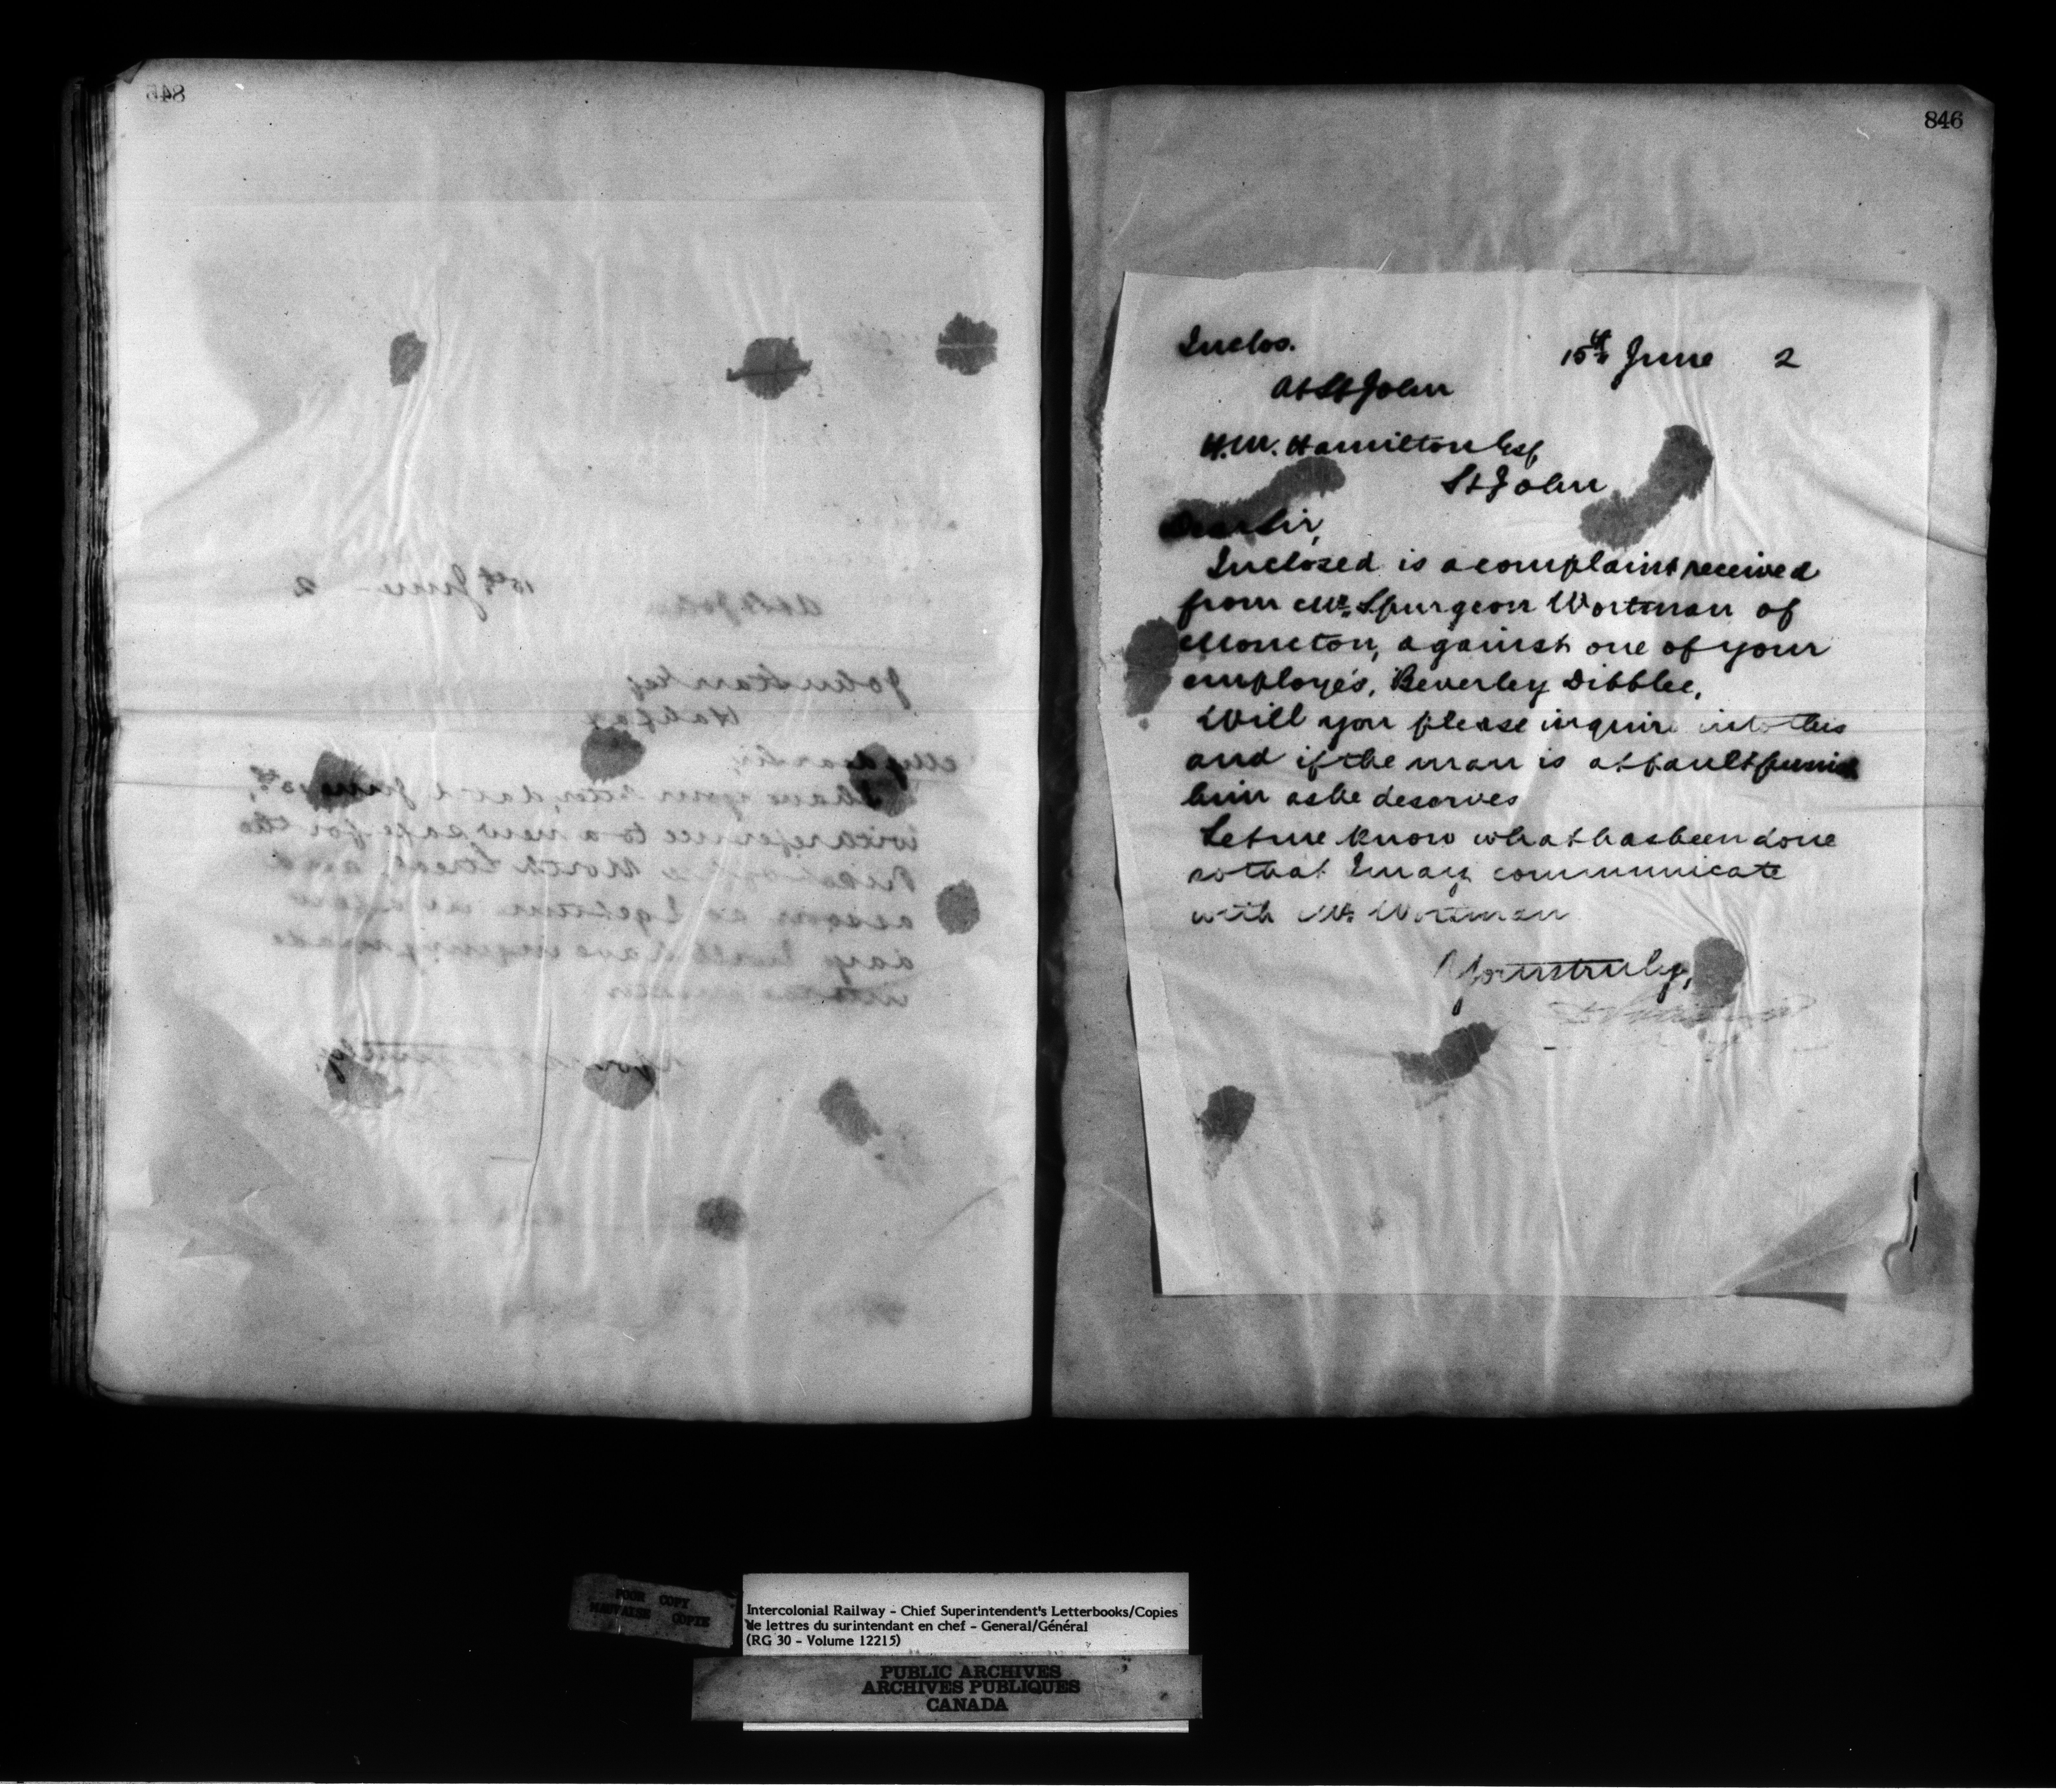 845
At St John 15th June - 2
John
Halifax
My dear Sir,
I have your letter, dated June 10th,
with reference to a new safe for the
Ticket office North Street, and
as soon as I get in a
day I will have inquiry made
into the
Yours truly,
846
Inclos. 15th June 2
At St John
H.M. Hamilton Esq
St John
Dear Sir,
Inclosed is a complaint received
from Mr. Spurgeon Wortman of
Moncton, against one of your
employés, Beverley Dibblee.
Will you please inquire into this
and if the man is at fault punish
him as he deserves
Let me know what has been done
so that I may communicate
with Mr. Wortman
Yours truly,
POOR COPY
MAUVAISE COPIE
Intercolonial Railway - Chief Superintendent's Letterbooks/Copies
de lettres du surintendant en chef - General/Général
(RG 30 - Volume 12215)
PUBLIC ARCHIVES
ARCHIVES PUBLIQUES
CANADA